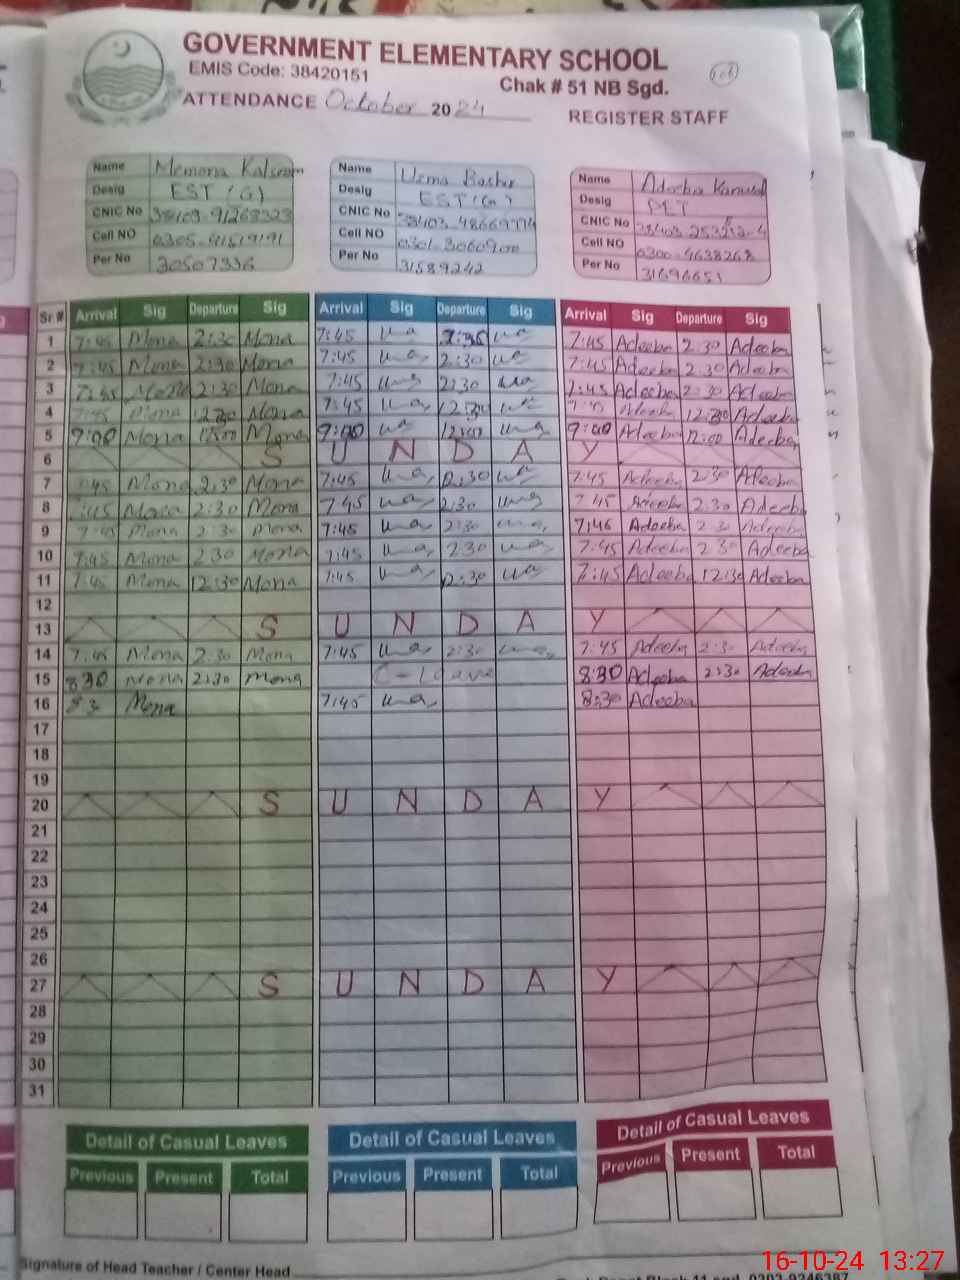 GOVERNMENT ELEMENTARY SCHOOL
EMIS Code: 38420151
Chak # 51 NB Sgd.
ATTENDANCE October 2024
REGISTER STAFF
Name Memona Kalsoom
Desig EST (G)
CNIC No
Cell NO
Per No 30507336
Name Uzma Bashir
Desig EST (G)
CNIC No
Cell NO 0301-3060900
Per No 31589242
Name Adeeba
Desig PET
CNIC No
Cell NO 0300-4638268
Per No 31696651
Sr # Arrival Sig Departure Sig Arrival Sig Departure Sig Arrival Sig Departure Sig
1 7:45 Mona 2:30 Mona 7:45 2:30 7:45 Adeeba 2:30 Adeeba
2 7:45 Mona 2:30 Mona 7:45 2:30 7:45 Adeeba 2:30 Adeeba
3 7:45 Mona 2:30 Mona 7:45 2:30 7:45 Adeeba 2:30 Adeeba
4 7:45 Mona 12:30 Mona 7:45 12:30 7:45 Adeeba 12:30 Adeeba
5 9:00 Mona 12:00 Mona 9:00 12:00 9:00 Adeeba 12:00 Adeeba
6 S U N D A Y
7 7:45 Mona 2:30 Mona 7:45 2:30 7:45 Adeeba 2:30 Adeeba
8 7:45 Mona 2:30 Mona 7:45 2:30 7:45 Adeeba 2:30 Adeeba
9 7:45 Mona 2:30 Mona 7:45 2:30 7:46 Adeeba 2:30 Adeeba
10 7:45 Mona 2:30 Mona 7:45 2:30 7:45 Adeeba 2:30 Adeeba
11 7:45 Mona 12:30 Mona 7:45 12:30 7:45 Adeeba 12:30 Adeeba
12
13 S U N D A Y
14 7:45 Mona 2:30 Mona 7:45 2:30 7:45 Adeeba 2:30 Adeeba
15 8:30 Mona 2:30 Mona C-leave 8:30 Adeeba 2:30 Adeeba
16 8:3 Mona 7:45 8:30 Adeeba
17
18
19
20 S U N D A Y
21
22
23
24
25
26
27 S U N D A Y
28
29
30
31
Detail of Casual Leaves Detail of Casual Leaves Detail of Casual Leaves
Previous Present Total Previous Present Total Previous Present Total
Signature of Head Teacher / Center Head
16-10-24 13:27